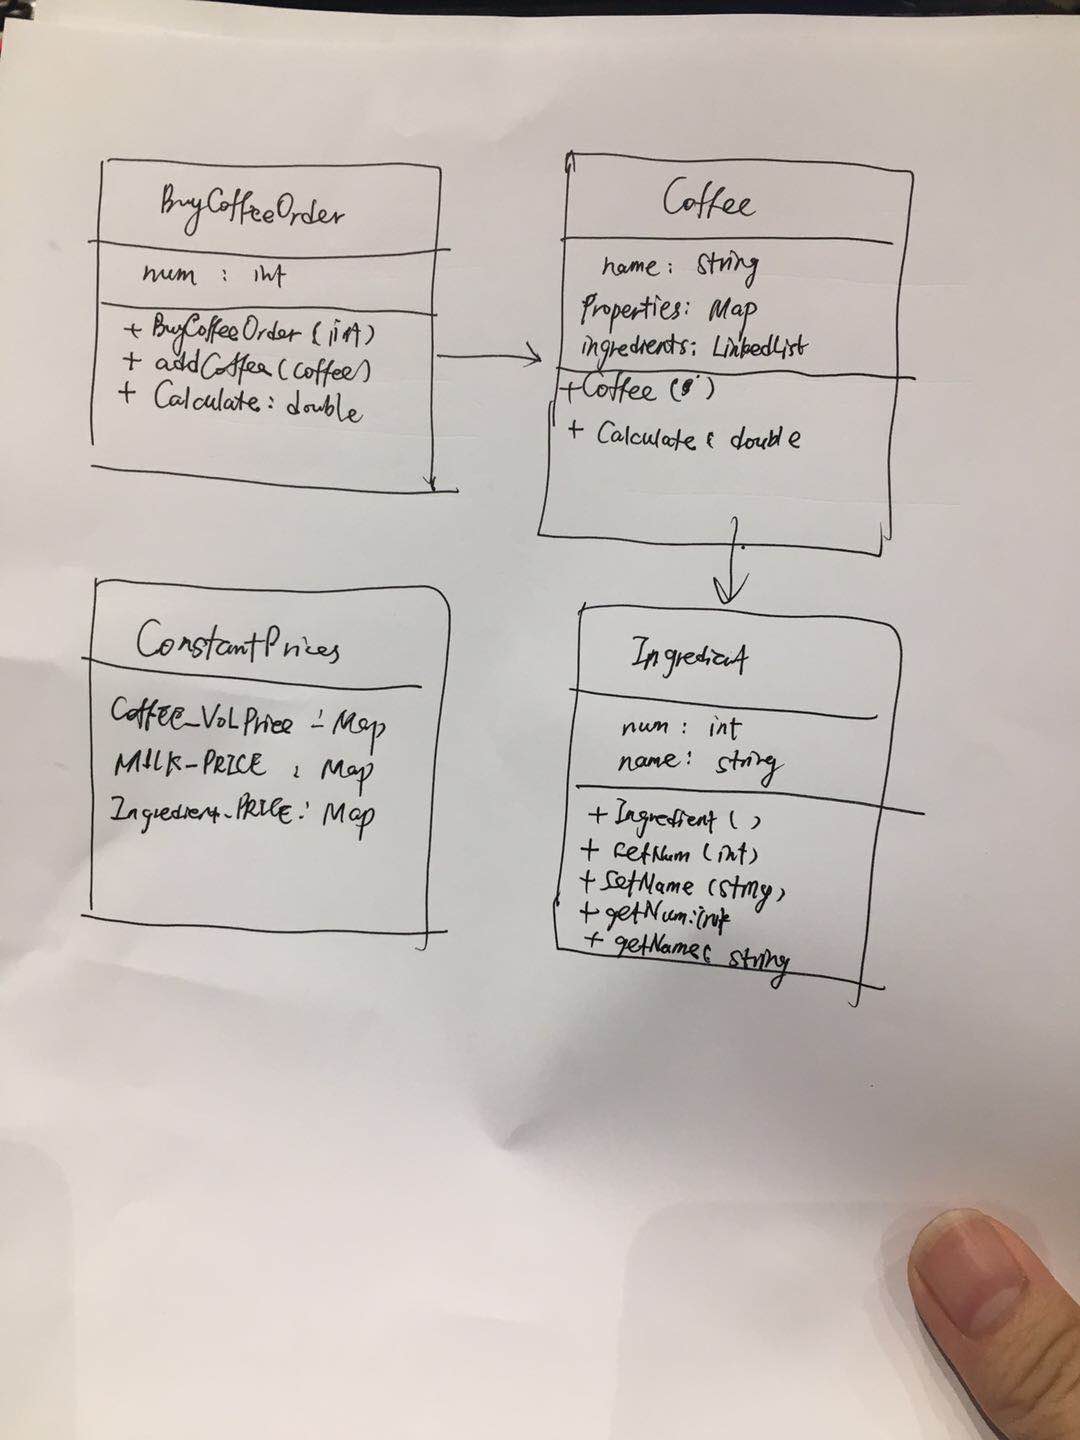 BuyCoffeeOrder
num : int
+ BuyCoffeeOrder (int)
+ addCoffee (coffee)
+ Calculate : double
Coffee
name : string
Properties: Map
ingredients: LinkedList
+Coffee ( )
+ Calculate : double
ConstantPrices
COFFEE_VOLPrice : Map
MILK-PRICE : Map
Ingredient-PRICE: Map
Ingredient
num : int
name : string
+ Ingredient ( )
+ setNum (int)
+ setName (string)
+ getNum: int
+ getName: string